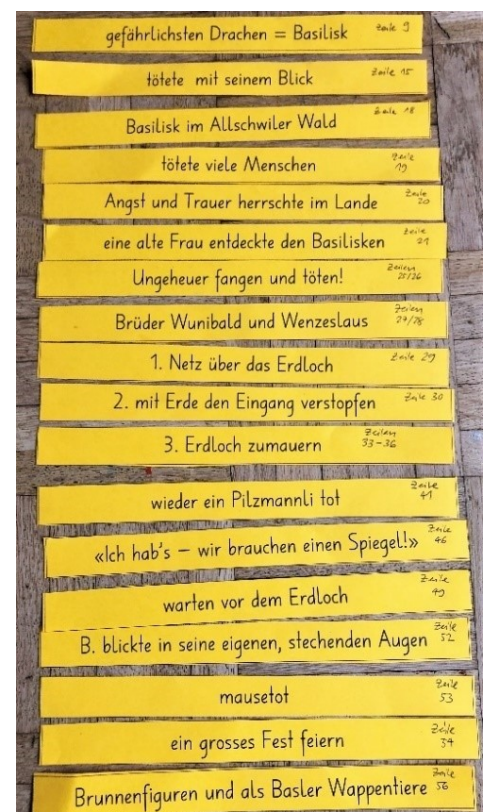 gefährlichsten Drachen = Basilisk Zeile 9
tötete mit seinem Blick Zeile 15
Basilisk im Allschwiler Wald Zeile 18
tötete viele Menschen Zeile 19
Angst und Trauer herrschte im Lande Zeile 20
eine alte Frau entdeckte den Basilisken Zeile 21
Ungeheuer fangen und töten! Zeilen 25/26
Brüder Wunibald und Wenzeslaus Zeilen 27/28
1. Netz über das Erdloch Zeile 29
2. mit Erde den Eingang verstopfen Zeile 30
3. Erdloch zumauern Zeilen 33-36
wieder ein Pilzmannli tot Zeile 41
«Ich hab's – wir brauchen einen Spiegel!» Zeile 46
warten vor dem Erdloch Zeile 49
B. blickte in seine eigenen, stechenden Augen Zeile 52
mausetot Zeile 53
ein grosses Fest feiern Zeile
Brunnenfiguren und als Basler Wappentiere Zeile 56